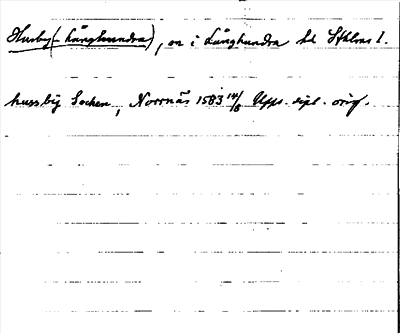 Husby (-Långhundra), sn i Långhundra hd Sthlms l.
hussby Sochen, Norrnäs 1583 14/6 Upps. dipl. orig.